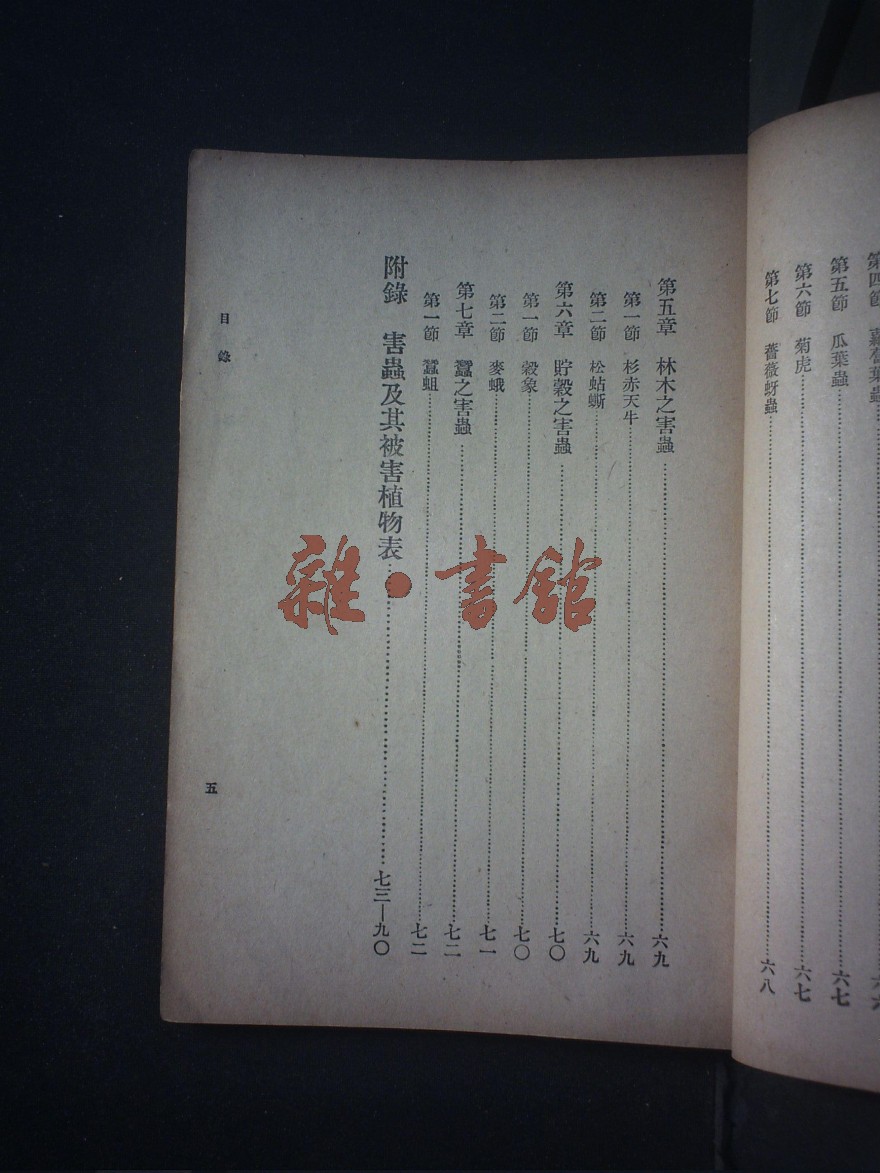 第五節　瓜葉蟲……六七
第六節　菊虎……六七
第七節　薔薇蚜蟲……六八
第五章　林木之害蟲……六九
第一節　杉赤天牛……六九
第二節　松蛄蟖……六九
第六章　貯穀之害蟲……七〇
第一節　穀象……七〇
第二節　麥蛾……七一
第七章　蠶之害蟲……七二
第一節　蠶蛆……七二
附錄　害蟲及其被害植物表……七三—九〇
目錄
五
雜·書館